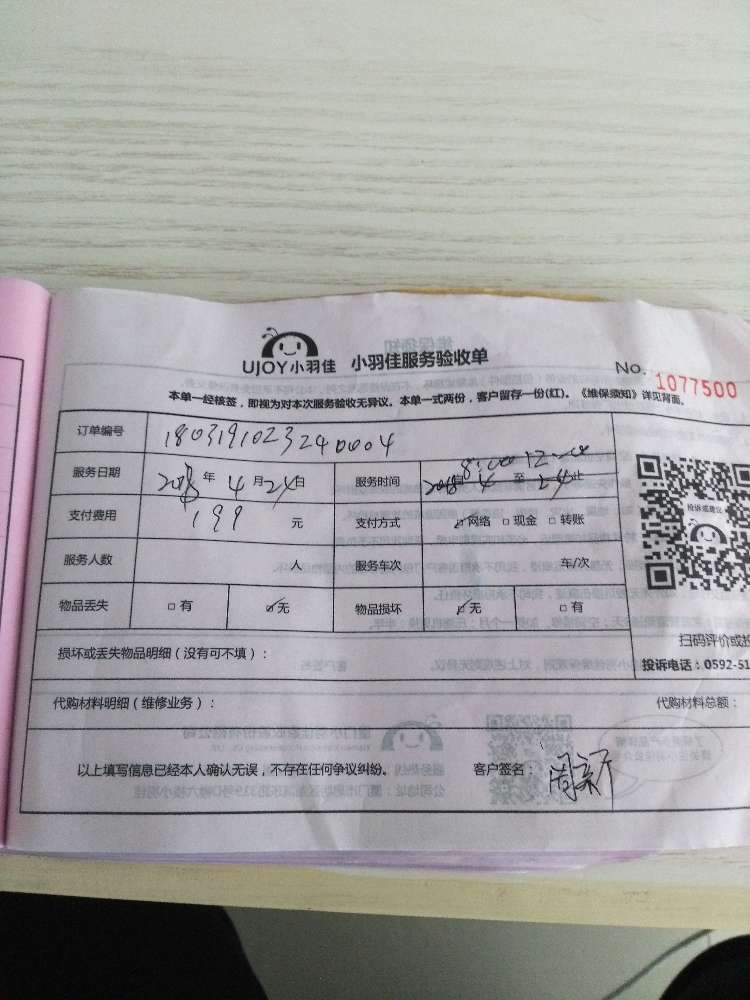 UJOY小羽佳 小羽佳服务验收单
No. 1077500
本单一经核签，即视为对本次服务验收无异议。本单一式两份，客户留存一份(红)。《维保须知》详见背面。
订单编号 1803191023240004
服务日期 2018年4月24日 服务时间 8:00 12:00 2018 4 至 24 止
支付费用 199 元 支付方式 ☑网络 □现金 □转账
服务人数 人 服务车次 车/次
物品丢失 □有 ☑无 物品损坏 ☑无 □有
投诉或建议
扫码评价或投
投诉电话：0592-51
损坏或丢失物品明细（没有可不填）：
代购材料明细（维修业务）： 代购材料总额：
以上填写信息已经本人确认无误，不存在任何争议纠纷。 客户签名：